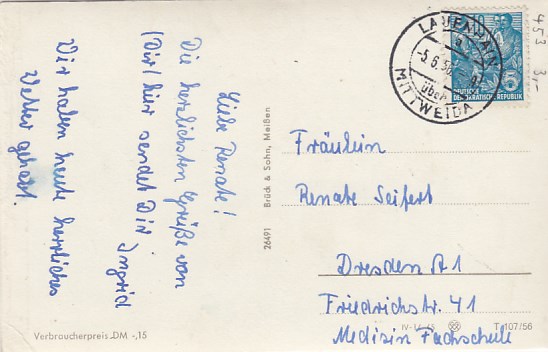 Liebe Renate!
Die herzlichsten Grüße von
(Dir) hier sendet Dir Ingrid
Wir haben heute herrliches
Wetter gehabt.
Brück & Sohn, Meißen
26491
Verbraucherpreis DM -,15
LAUENHAIN
-5.6.
über
MITTWEIDA
DEUTSCHE
DEMOKRATISCHE REPUBLIK
5
453 3,-
Fräulein
Renate Seifert
Dresden A1
Friedrichstr. 41
Medizin Fachschule
T 107/56